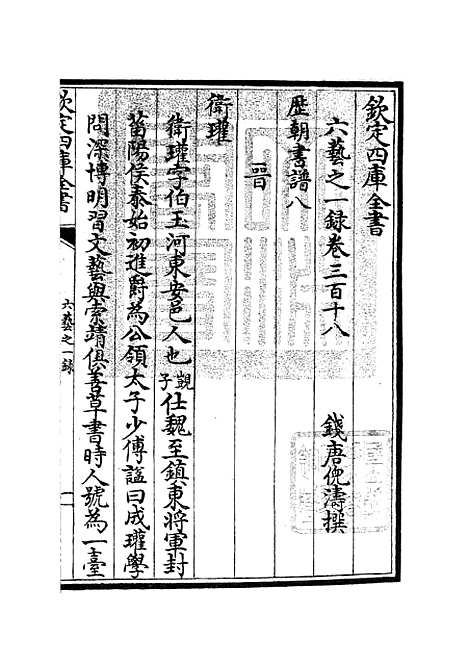 欽定四庫全書
六藝之一録卷三百十八
錢唐倪濤撰
歴朝書譜八
晉
衛瓘
衛瓘字伯玉河東安邑人也覬子仕魏至鎮東將軍封
菑陽侯泰始初進爵為公領太子少傅謚曰成瓘學
問深博明習文藝與索靖俱善草書時人號為一臺
欽定四庫全書
六藝之一録
一